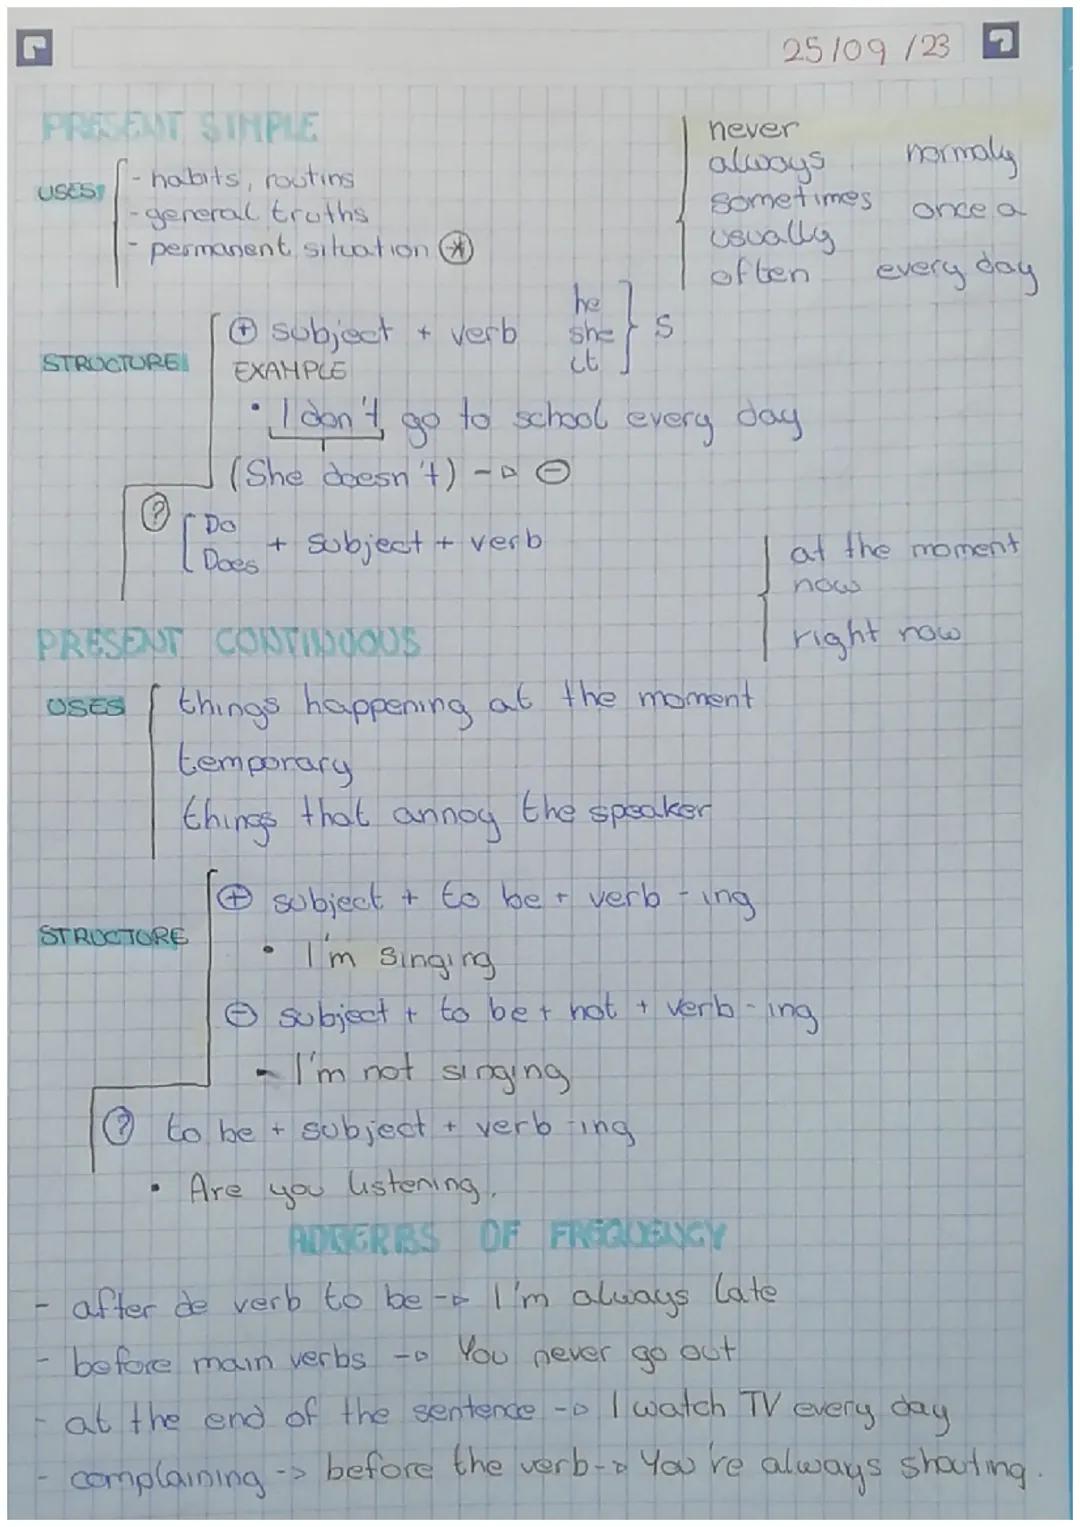 25/09/23
PRESENT SIMPLE
USES:
- habits, routins
- general truths
- permanent situation *
never
always normaly
sometimes once a
usually
often every day
STRUCTURE
+ subject + verb he she it } s
EXAMPLE
• I don't go to school every day
(She doesn't) -> -
? Do
Does + subject + verb
at the moment
now
right now
PRESENT CONTINUOUS
USES
things happening at the moment
temporary
things that annoy the speaker
STRUCTORE
+ subject + to be + verb - ing
• I'm singing
- subject + to be + not + verb - ing
- I'm not singing
? to be + subject + verb -ing
• Are you listening.
ADVERBS OF FREQUENCY
- after de verb to be -> I'm always late
- before main verbs -> You never go out
- at the end of the sentence -> I watch TV every day
- complaining -> before the verb -> You're always shouting.